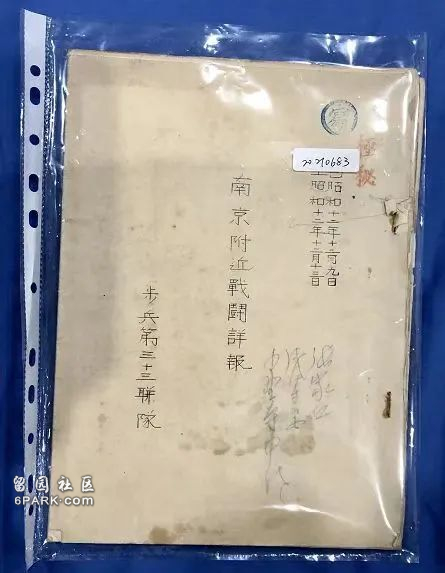 極秘
写
2210683
自昭和十二年十二月九日
至昭和十二年十二月十三日
南京附近戰鬪詳報
步兵第三十三聯隊
留园社区
6PARK.com